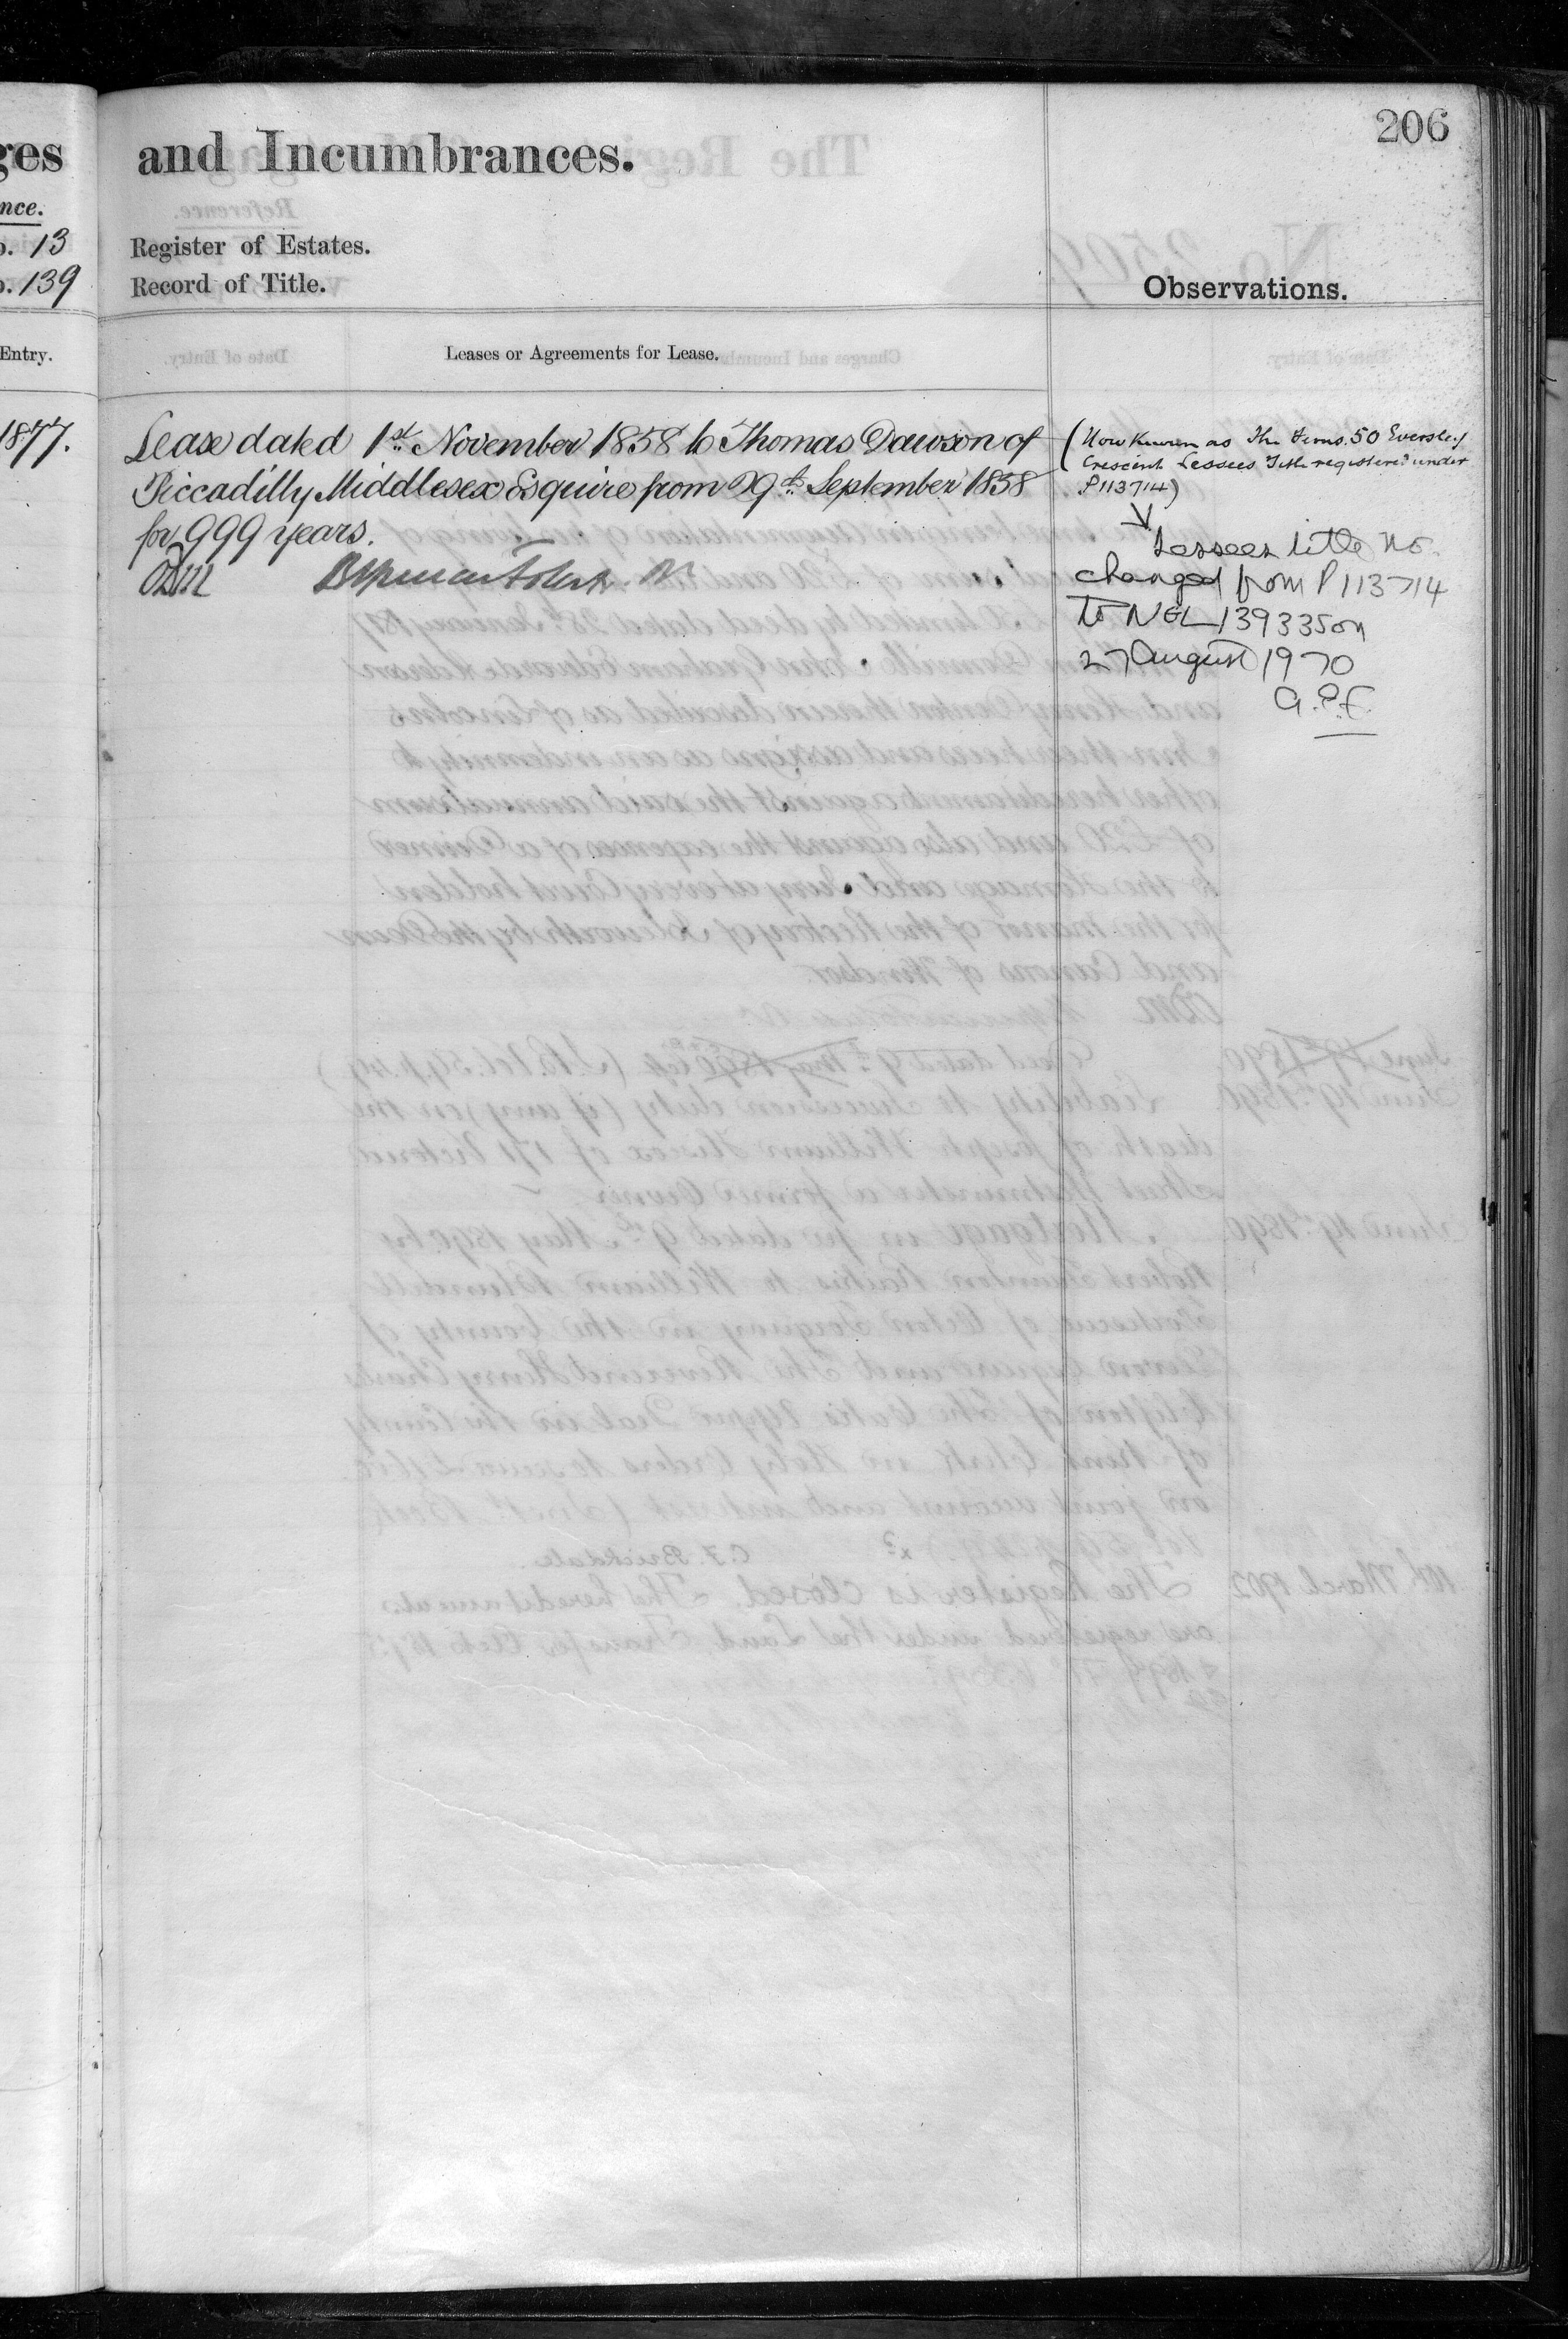 206
ges
and Incumbrances.
nce.
o. 13
Register of Estates.
o. 139
Record of Title.
Observations.
Entry.
Leases or Agreements for Lease.
1877.
Lease dated 1st November 1858 to Thomas Dawson of
Piccadilly Middlesex Esquire from 29th September 1858
for 999 years.
(Now known as The Ferns, 50 Eversley
Crescent Lessees Title registered under
P113714)
Lessees title no.
changed from P113714
to NGL139335 on
27 August 1970